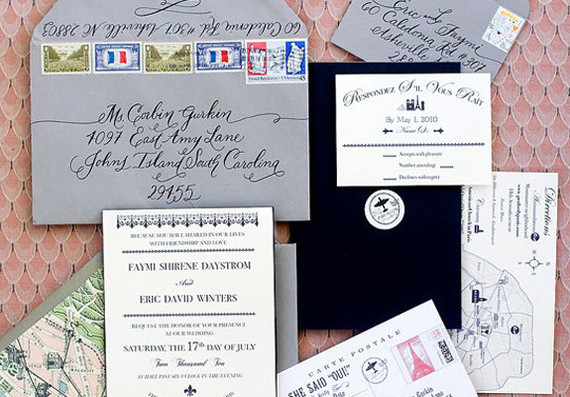 60 Caledonia Rd #307 Asheville
NC 28803
Ms. Corbin Gurkin
1097 East Amy Lane
Johns Island South Carolina
29455
Eric and Faymi
60 Caledonia Rd 307
Asheville
288
Respondez S'il Vous Plait
By May 1, 2010
Name (s):
Accepts with pleasure
Number attending
Declines with regret
Directions
BECAUSE YOU HAVE SHARED IN OUR LIVES
WITH FRIENDSHIP AND LOVE
FAYMI SHIRENE DAYSTROM
AND
ERIC DAVID WINTERS
REQUEST THE HONOR OF YOUR PRESENCE
AT OUR WEDDING
SATURDAY, THE 17th DAY OF JULY
Two Thousand Ten
AT HALF PAST SIX O'CLOCK IN THE EVENING
CARTE POSTALE
SHE SAID "OUI!"